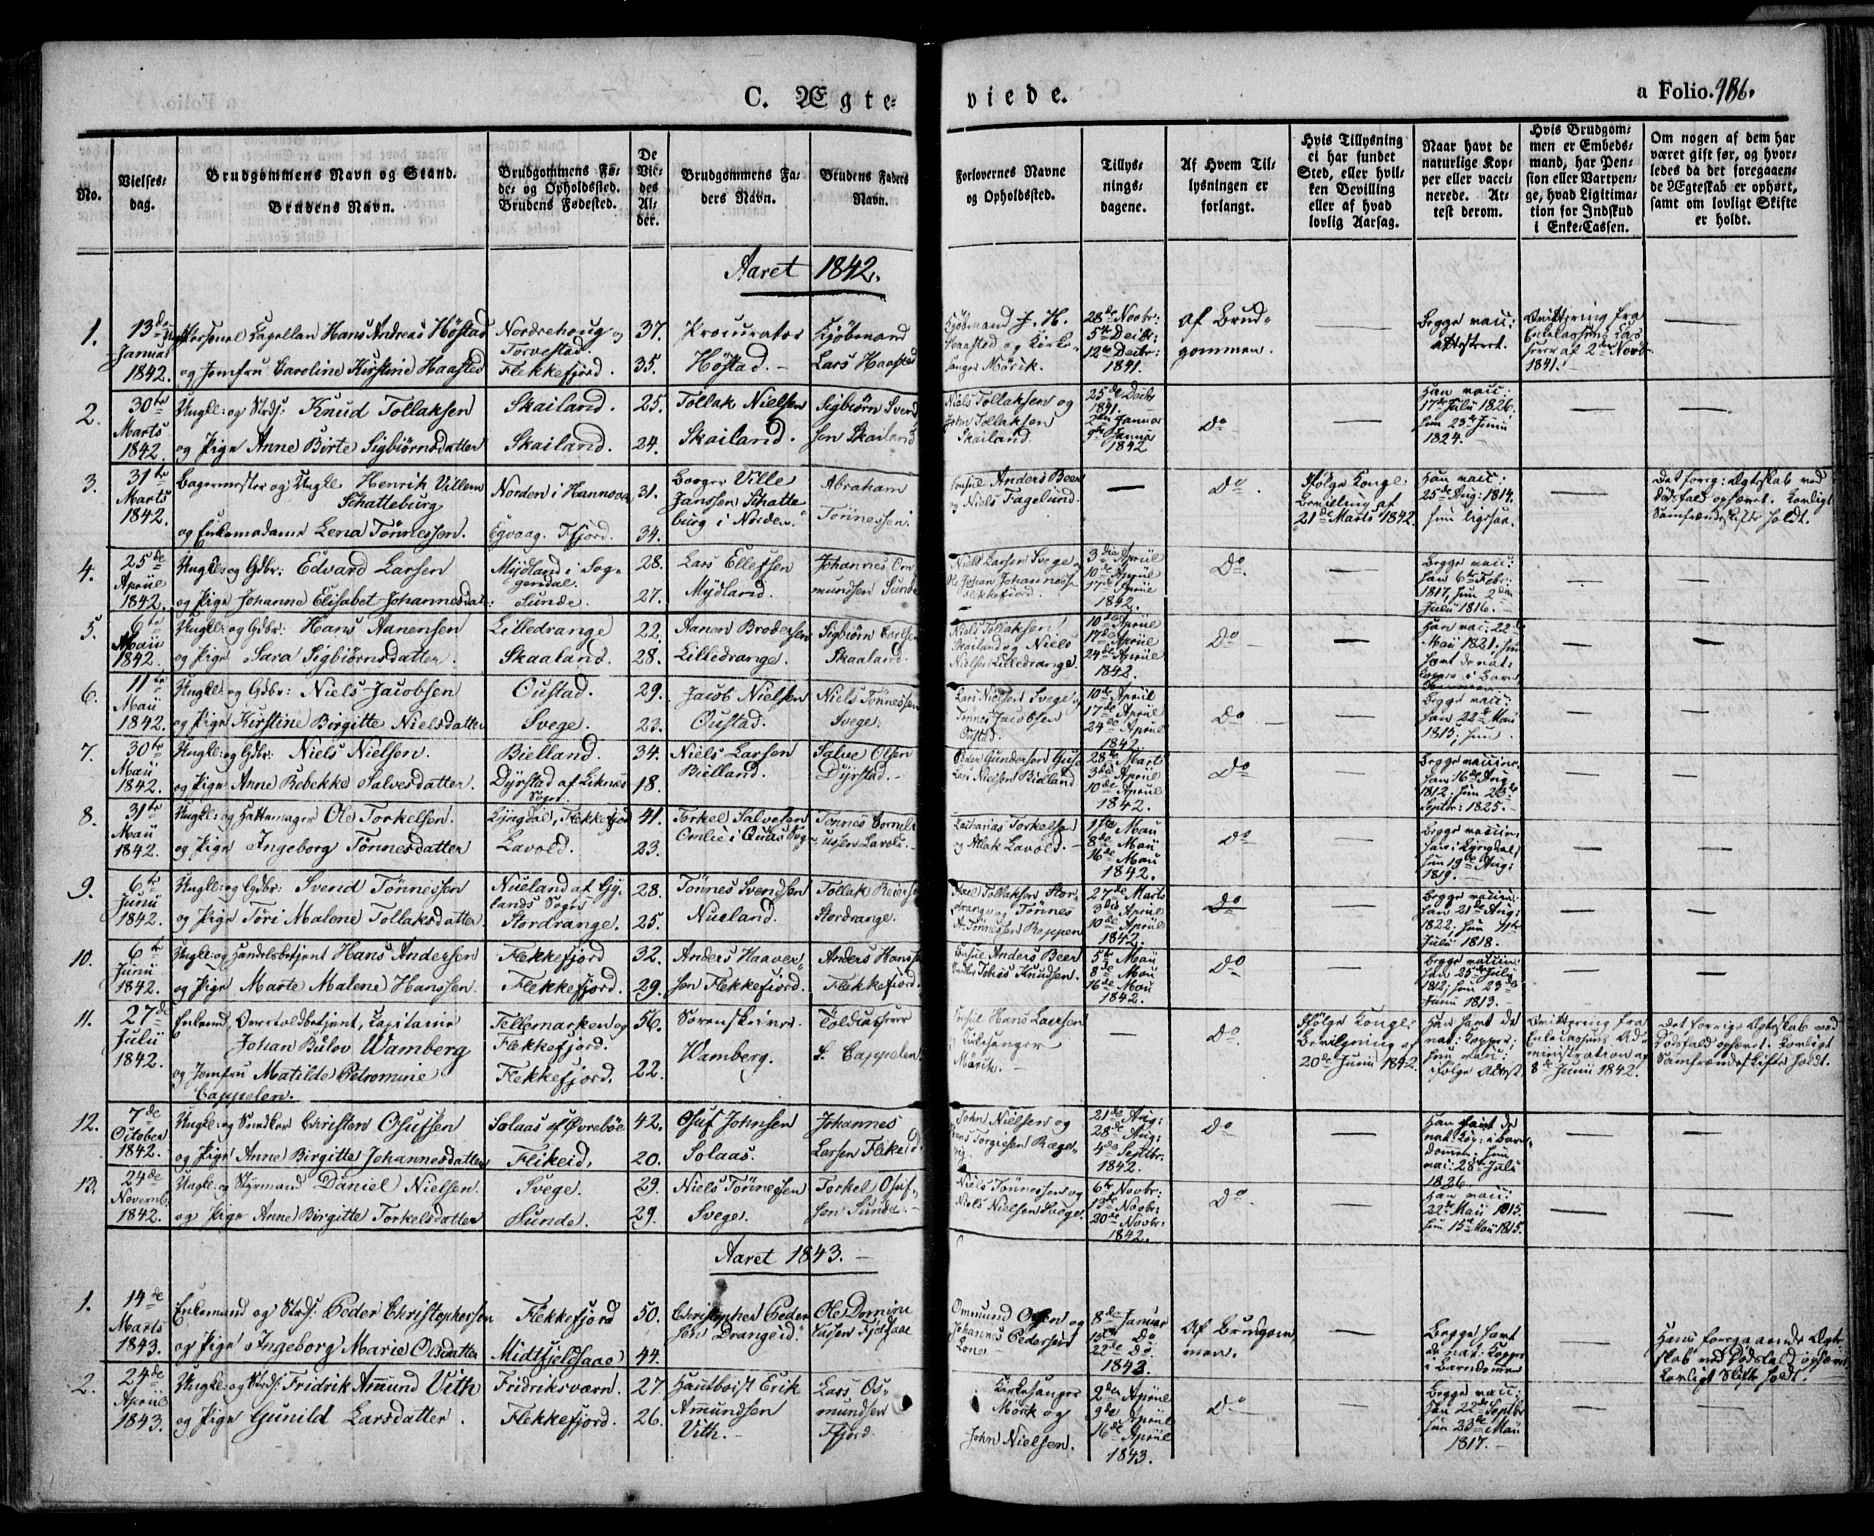 C. Ægte-
viede.
a Folio. 986.
No.
Vielses-
dag.
Brudgommens Navn og Stand.
Brudens Navn.
Brudgommens Fø-
de- og Opholdssted.
Brudens Fødested.
De
Vie-
des
Al-
der.
Brudgommens Fa-
ders Navn.
Brudens Faders
Navn.
Forlovernes Navne
og Opholdssted.
Tillys-
nings-
dagene.
Af Hvem Til-
lysningen er
forlangt.
Hvis Tillysning
ei har fundet
Sted, eller hvil-
ken Bevilling
eller af hvad
lovlig Aarsag.
Naar havt de
naturlige Kop-
per eller vacci-
nerede. At-
test derom.
Hvis Brudgom-
men er Embeds-
mand, har Pen-
sion eller Vartpen-
ge, hvad Ligitima-
tion for Indskud
i Enke-Cassen.
Om nogen af dem har
været gift før, og hvor-
ledes da det foregaaen-
de Ægteskab er ophørt,
samt om lovligt Skifte
er holdt.
Aaret 1842.
1.
13de
Januar
1842.
Personel Capellan Hans Andreas Høstad
og Jomfru Caroline Kirstine Haasted
Nordrehoug og
Torvestad
Flekkefjord.
37.
35.
Procurator
Høstad.
Kjøbmand
Lars Haasted
Kjøbmand J. H.
Haasted og Kirke-
sanger Mørik.
28de Novbr:
5te Decbr:
12te Decbr:
1841.
Af Brud-
gommen.
Begge vacc:
attesteret.
Qvittering fra
Enkecassens Cas-
serer af 2den Novbr
1841.
2.
30te
Marts
1842.
Ungkl: og Strds: Knud Tollaksen
og Pige Anne Birte Sigbiørnsdatter
Skailand.
Skailand.
25.
24.
Tollak Nielsen
Skailand.
Sigbiørn Svend
sen Skailand
Niels Tollaksen og
John Tollaksen
Skailand
25de Decbr
1841.
2den Januar
9de Januar
1842
Do
Han vacc:
17de Julii 1826.
hun 23de Junii
1824.
3.
31te
Marts
1842.
Bagermester og Ungkl Henrik Villem
Schatteburg
og Enkemadame Lena Tønnessen.
Norden i Hannover
Egvaag. Ffjord.
31.
34.
Borger Ville
Janssen Schatte
burg i Norden.
Abraham
Tønnessen.
Consul Anders Beer
og Niels Fagelund.
Do.
Ifølge Kongl:
Bevilling af
21de Marts 1842.
Han vacc:
25de Aug: 1814.
hun ligesaa.
Det forrig: Ægtskab ved
Dødsfald ophævet. Lovligt
Samfrændeskifte holdt.
4.
25de
April
1842.
Ungkl: og Gdbr: Edvard Larsen
og Pige Johanne Elisabet Johannesdat:
Mydland i Sog-
gendal.
Sunde.
28.
27.
Lars Ellefsen
Mydland.
Johannes Om
mundsen Sunde
Niels Larsen Svege
Ole Johan Johannes
Flekkefjord.
3die April
10de April
17de April
1842.
Do.
Begge vacc:
han 6te Febr:
1817, hun 2den
Julii 1816.
5.
6te
Maii
1842.
Ungkl: og Gdbr: Hans Aanensen
og Pige Sara Sigbiørnsdatter.
Lilledrange
Skaaland.
22.
28.
Aanen Brodersen
Lilledrange.
Sigbiørn Carlsen
Skaaland.
Niels Tollaksen
Skailand og Niels
Nielsen Lilledrange.
10de April
17de April
24de April
1842.
Do
Han vac: 22de
Maii 1821; hun
havt de nat:
Kopper i Barn
dommen
6.
11te
Maii
1842.
Ungkl: og Gdbr: Niels Jacobsen
og Pige Kirstine Birgitte Nielsdatter
Oustad.
Svege.
29.
23.
Jacob Nielsen
Oustad.
Niels Tønnessen
Svege.
Lars Nielsen Svege og
Tønnes Jacobsen
Oustad.
10de April
17de April
24de April
1842.
Do
Begge vacc:
han 22de Maii
1815; hun
7.
30te
Maii
1842.
Ungkl: og Gdbr: Niels Nielsen.
og Pige Anne Rebekke Salvesdatter.
Bielland.
Dyrstad af Liknes
Sogn.
34.
18.
Niels Larsen
Bielland.
Salve Olsen
Dyrstad.
Peder Gundersen
Lars Nielsen Bielland
28de Marts
3die April
10de April
1842.
Do
Begge vaccine:
han 16de Aug
1812; hun 23de
Septbr: 1825.
8.
31te
Maii
1842.
Ungkl: og Hattemager Ole Torkelsen.
og Pige Ingeborg Tønnesdatter
Lyngdal, Flekkefjord
Lavold.
41.
23.
Torkel Salvesen
Omlie i Quaas Sogn
Tønnes Corneli
ussen Lavold.
Zacharias Torkelsen
og Atlak Lavold.
1ste Maii
8de Maii
16de Maii
1842.
Do
Begge vaccin.
han i Lyngdal,
hun 19de Aug:
1819.
9.
6te
Junii
1842.
Ungkl: og Gdbr: Svend Tønnessen
og Pige Tøri Malene Tollaksdatter
Nueland af Gy-
lands Sogn
Stordrange.
28.
25.
Tønnes Svendsen
Nueland.
Tollak Reiersen
Stordrange.
Axel Tollaksen Stor-
drange og Tønnes
A. Tønnessen Reppen
27de Marts
3die April
10de April
1842.
Do
Begge vaccin:
han 21de Aug:
1822; hun 11te
Julii 1818.
10.
6te
Junii
1842.
Ungkl: og Handelsbetjent Hans Andersen
og Pige Marte Malene Hanssen.
Flekkefjord
Flekkefjord.
32.
29.
Anders Haaver-
sen Flekkefjord.
Anders Hanss
Flekkefjord
Consul Anders Beer
Tobias Knudsen.
5te Maii
8de Maii
16de Maii
1842.
Do
Begge vaccin:
han 25de Julii
1812; hun 23de
Junii 1813.
11.
27de
Julii
1842.
Enkemd, Overtoldbetjent, Capitaine
Johan Bülov Wamberg
og Jomfru Matilde Petromine
Cappelen.
Tellemarken og
Flekkefjord.
Flekkefjord.
56.
22.
Sorenskriver
Wamberg.
Toldcasserer
S. Cappelen
Consul Hans Laersen
Kirkesanger
Mørik.
Do.
Ifølge Kongl:
Bevilgning af
20de Junii 1842.
Han havt de
nat: Kopper;
hun vacc:
ifølge Attest
Qvittering fra
Enkecassens Ad-
ministration af
8de Junii 1842.
Det forrige Ægteskab ved
Dødsfald ophævet. Lovligt
Samfrændeskifte holdt.
12.
7de
October
1842.
Ungkl: og Snedker Christen Osufsen
og Pige Anne Birgitte Johannesdatter
Solaas af Øvrebøe
Flikeid.
42.
20.
Osuf Johnsen
Solaas.
Johannes
Larsen Flikeid
John Nielsen og
Torgiersen Ræge-
vig.
21de Aug:
28de Aug:
4de Septbr:
1842.
Do
Han havt de
nat: Kop: i Barn
dommen; hun
vac: 28de Julii
1826.
13.
24de
Novembr
1842.
Ungkl: og Styrmand Daniel Nielsen.
og Pige Anne Birgitte Torkelsdatter
Svege.
Sunde.
29.
29.
Niels Tønnessen
Svege.
Torkel Osuf-
sen Sunde.
Niels Tønnessen og
Niels Nielsen Svege.
6te Novbr:
13de Novbr:
20de Novbr:
1842.
Do
Han vacc:
22de Maii 1815.
hun 15de Maii 1815.
Aaret 1843.
1.
14de
Marts
1843.
Enkemand og Strds: Peder Christophersen
og Pige Ingeborg Marie Olsdatter
Flekkefjord
Midtfjeldsaae
50.
44.
Christopher Peder
sen Drangeid.
Ole Domini
cusen Fjeldsaae
Ommund Olsen og
Johannes Pedersen
Lones
8de Januar
15de Do
22de Do.
1843.
Af Brudgom
men.
Begge havt
de nat. Kopper
i Barndommen
Hans foregaaende Ægte
skab ved Dødsfald ophævet
Lovligt Skifte holdt.
2.
24de
April
1843.
Ungkl: og Strds: Fridrik Amund Vith
og Pige Gunild Larsdatter.
Fridriksværn.
Flekkefjord.
27.
26.
Hautboist Erik
Amundsen
Vith.
Lars Os-
mundsen
Ffjord.
Kirkesanger
Mørik og
John Nielsen.
2den April
9de April
16de April
1843.
Do
Begge vacc:
Han 22de Septbr
hun 23de Maii
1817.